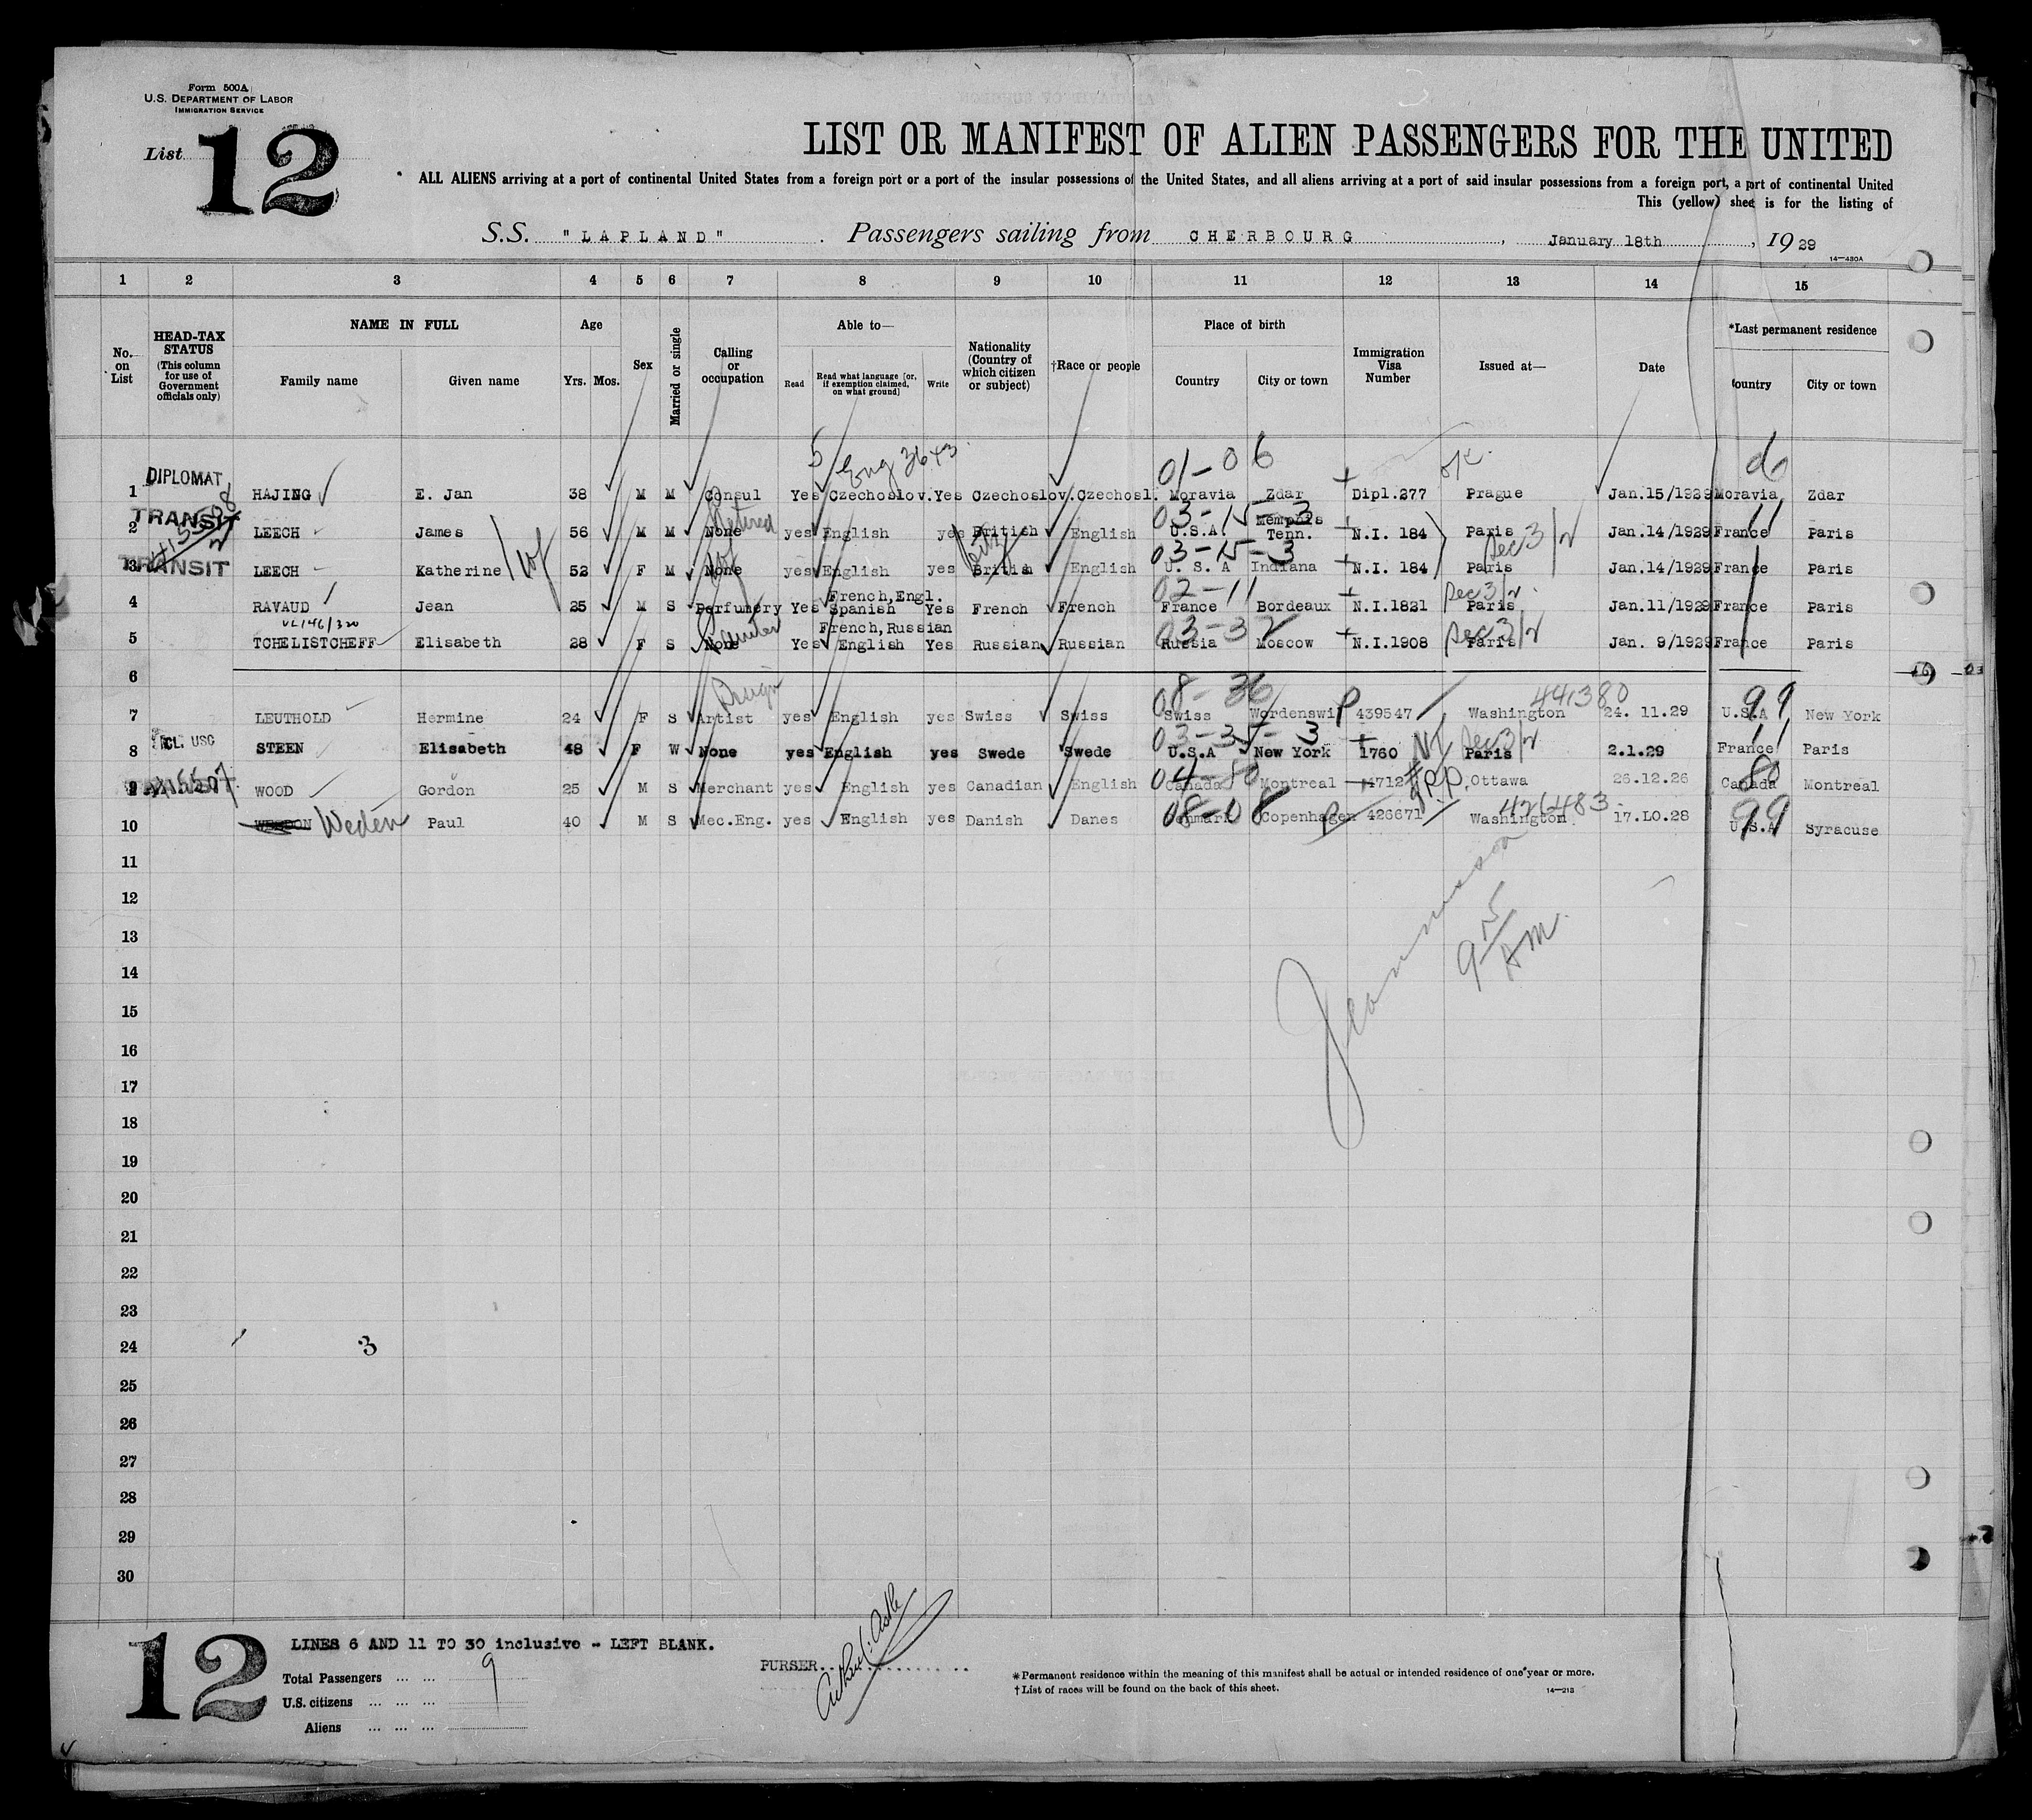 Form 500A
U.S. DEPARTMENT OF LABOR
IMMIGRATION SERVICE
List 12
LIST OR MANIFEST OF ALIEN PASSENGERS FOR THE UNITED
ALL ALIENS arriving at a port of continental United States from a foreign port or a port of the insular possessions of the United States, and all aliens arriving at a port of said insular possessions from a foreign port, a port of continental United
This (yellow) sheet is for the listing of
S.S. "LAPLAND" . Passengers sailing from CHERBOURG, January 18th, 19 29
14—430A
1 2 3 4 5 6 7 8 9 10 11 12 13 14 15
No. on List
HEAD-TAX STATUS (This column for use of Government officials only)
NAME IN FULL
Family name Given name
Age
Yrs. Mos.
Sex
Married or single
Calling or occupation
Able to—
Read Read what language [or, if exemption claimed, on what ground] Write
Nationality (Country of which citizen or subject)
†Race or people
Place of birth
Country City or town
Immigration Visa Number
Issued at—
Date
*Last permanent residence
Country City or town
5 Eng 01-06 OK. 06
1 DIPLOMAT HAJING E. Jan 38 M M Consul Yes Czechoslov. Yes Czechoslov. Czechosl. Moravia Zdar Dipl.277 Prague Jan.15/1929 Moravia Zdar
Retired 03-15-3 11
2 TRANSIT LEECH James 56 M M None yes English yes British English U.S.A. Memphis Tenn. N.I. 184 Paris Jan.14/1929 France Paris
wf 03-15-3 Dec 3/2
3 TRANSIT LEECH Katherine 52 F M None yes English yes British English U. S. A Indiana N.I. 184 Paris Jan.14/1929 France Paris
02-11 Dec 3/2
4 RAVAUD Jean 25 M S Perfumery Yes French, Engl. Spanish Yes French French France Bordeaux N.I.1821 Paris Jan.11/1929 France Paris
VL146/320 03-37 Dec 3/2
5 TCHELISTCHEFF Elisabeth 28 F S None Yes French, Russian English Yes Russian Russian Russia Moscow N.I.1908 Paris Jan. 9/1929 France Paris
6
Design 08-36 P 441380 99
7 LEUTHOLD Hermine 24 F S Artist yes English yes Swiss Swiss Swiss Wordenswil 439547 Washington 24. 11.29 U.S.A New York
03-35-3 NI Dec 3/2 11
8 INCL. USC STEEN Elisabeth 48 F W None yes English yes Swede Swede U.S.A New York 1760 Paris 2.1.29 France Paris
04-80 P.P. 80
9 WOOD Gordon 25 M S Merchant yes English yes Canadian English Canada Montreal 4712 Ottawa 26.12.26 Canada Montreal
08-08 P 426483 99
10 Weden Paul 40 M S Mec.Eng. yes English yes Danish Danes Denmark Copenhagen 426671 Washington 17.LO.28 U.S.A Syracuse
11
12
13
9 15 AM
14
15
16
17
18
19
20
21
22
23
24 3
25
26
27
28
29
30
12
LINES 6 AND 11 TO 30 inclusive - LEFT BLANK.
Total Passengers ... ... 9
U.S. citizens ... ... ...
Aliens ... ... ...
PURSER
*Permanent residence within the meaning of this manifest shall be actual or intended residence of one year or more.
†List of races will be found on the back of this sheet.
14—213